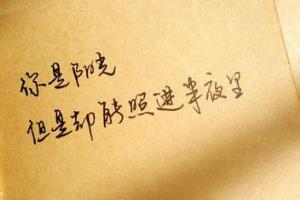 你是阳光
但是却能照進夜里